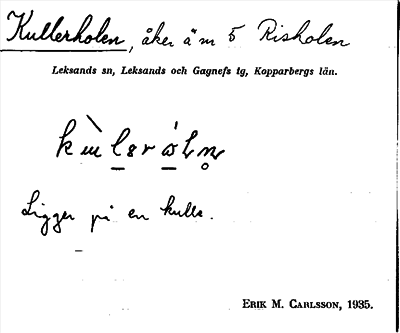 Kullerholen, åker ä m 5 Risholen
Leksands sn, Leksands och Gagnefs tg, Kopparbergs län.
Ligger på en kulle.
ERIK M. CARLSSON, 1935.